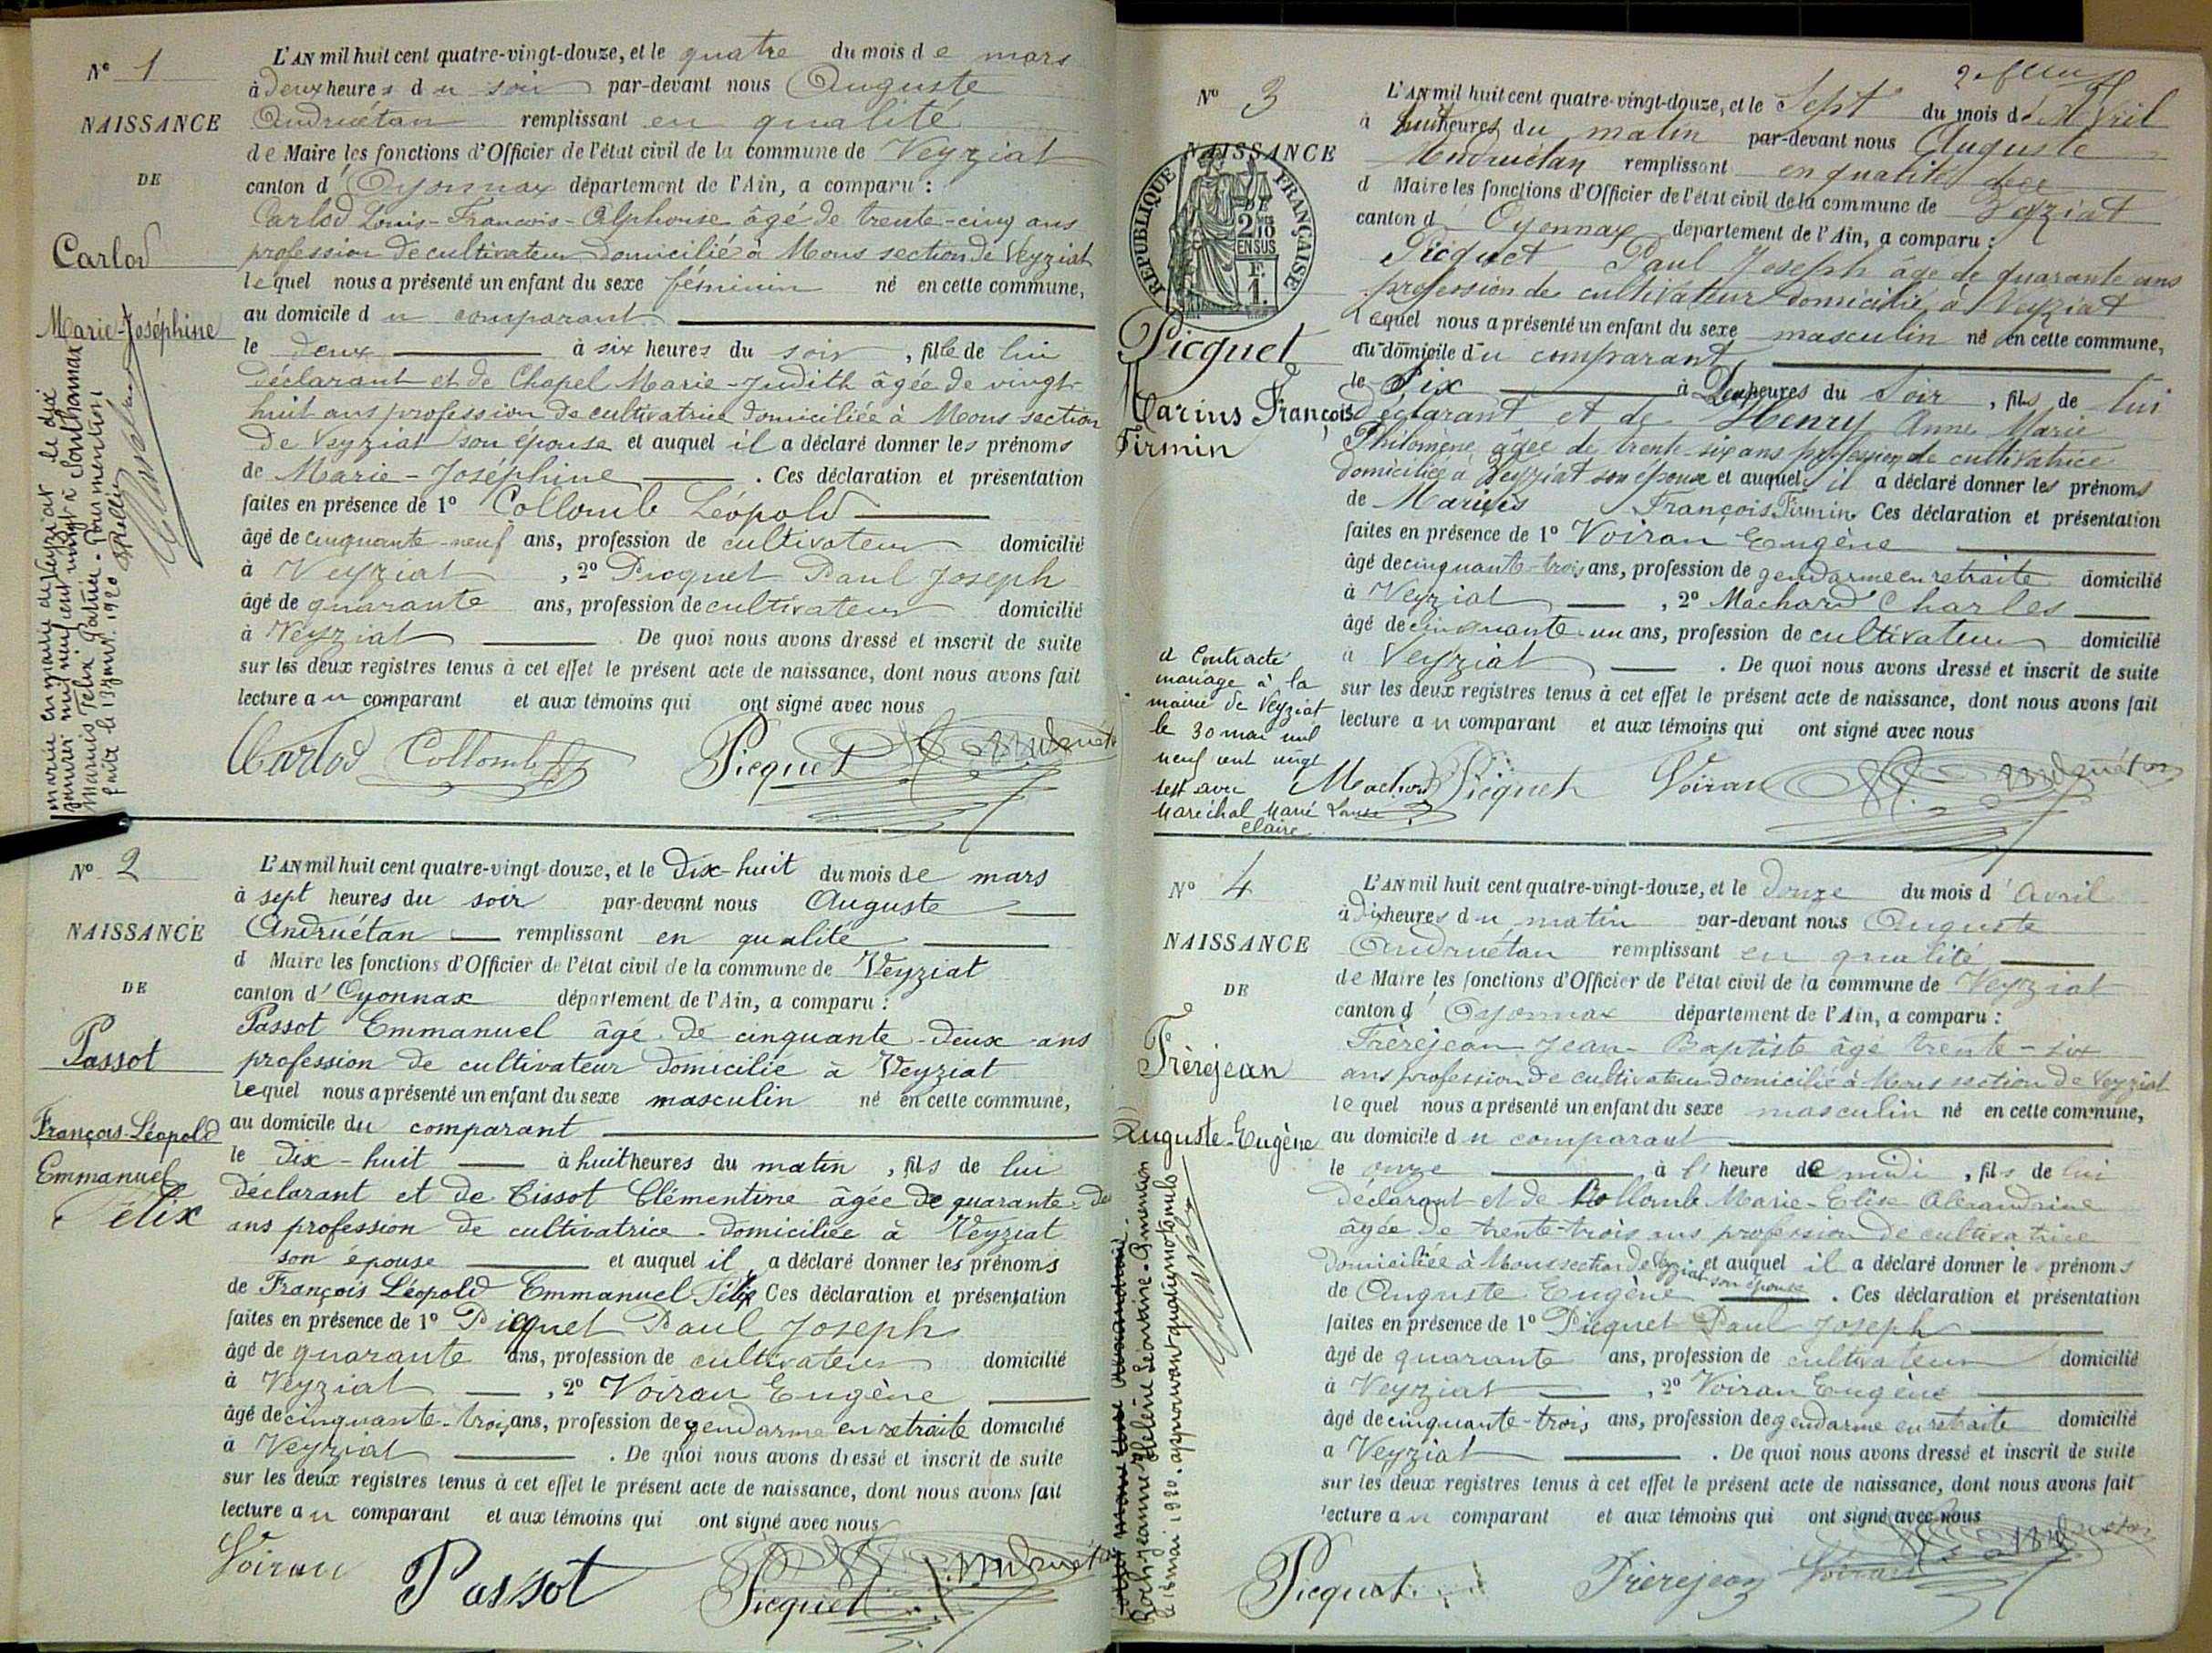 N° 1
NAISSANCE
DE
Carlod
Marie-Joséphine
mariée en mairie de Veyziat le dix
janvier mil neuf cent vingt à Southonnax
Marius Félix Patrie. Pour mention
faite le 13 janv. 1920
L'AN mil huit cent quatre-vingt-douze, et le quatre du mois de mars
à deux heures du soir par-devant nous Auguste
Andruétan remplissant en qualité
de Maire les fonctions d'Officier de l'état civil de la commune de Veyziat
canton d'Oyonnax département de l'Ain, a comparu :
Carlod Louis-François-Alphonse âgé de trente-cinq ans
profession de cultivateur domicilié à Mons section de Veyziat
lequel nous a présenté un enfant du sexe féminin né en cette commune,
au domicile du comparant
le deux à six heures du soir, fille de lui
déclarant et de Chapel Marie-Judith âgée de vingt-
huit ans profession de cultivatrice domiciliée à Mons section
de Veyziat son épouse et auquel il a déclaré donner les prénoms
de Marie-Joséphine. Ces déclaration et présentation
faites en présence de 1° Collomb Léopold
âgé de cinquante-neuf ans, profession de cultivateur domicilié
à Veyziat, 2° Picquet Paul Joseph
âgé de quarante ans, profession de cultivateur domicilié
à Veyziat. De quoi nous avons dressé et inscrit de suite
sur les deux registres tenus à cet effet le présent acte de naissance, dont nous avons fait
lecture au comparant et aux témoins qui ont signé avec nous
Carlod Collomb Picquet Andruétan
N° 2
NAISSANCE
DE
Passot
François-Léopold
Emmanuel
Félix
L'AN mil huit cent quatre-vingt-douze, et le dix-huit du mois de mars
à sept heures du soir par-devant nous Auguste
Andruétan remplissant en qualité
d Maire les fonctions d'Officier de l'état civil de la commune de Veyziat
canton d'Oyonnax département de l'Ain, a comparu :
Passot Emmanuel âgé de cinquante-deux ans
profession de cultivateur domicilié à Veyziat
lequel nous a présenté un enfant du sexe masculin né en cette commune,
au domicile du comparant
le dix-huit à huit heures du matin, fils de lui
déclarant et de Tissot Clémentine âgée de quarante-de
ans profession de cultivatrice domiciliée à Veyziat
son épouse et auquel il a déclaré donner les prénoms
de François Léopold Emmanuel Félix Ces déclaration et présentation
faites en présence de 1° Picquet Paul Joseph
âgé de quarante ans, profession de cultivateur domicilié
à Veyziat, 2° Voiran Eugène
âgé de cinquante-trois ans, profession de gendarme en retraite domicilié
à Veyziat. De quoi nous avons dressé et inscrit de suite
sur les deux registres tenus à cet effet le présent acte de naissance, dont nous avons fait
lecture au comparant et aux témoins qui ont signé avec nous
Voiran Passot Picquet Andruétan
N° 3
NAISSANCE
RÉPUBLIQUE FRANÇAISE
DE
2/10
EN SUS
F.
1.
Picquet
Marius François
Firmin
a contracté
mariage à la
mairie de Veyziat
le 30 mai mil
neuf cent vingt
sept avec
Maréchal Marie Louise
Claire
L'AN mil huit cent quatre-vingt-douze, et le sept du mois d'Avril
à huit heures du matin par-devant nous Auguste
Andruétan remplissant en qualité de
d Maire les fonctions d'Officier de l'état civil de la commune de Veyziat
canton d'Oyonnax département de l'Ain, a comparu :
Picquet Paul Joseph âgé de quarante ans
profession de cultivateur domicilié à Veyziat
lequel nous a présenté un enfant du sexe masculin né en cette commune,
au domicile du comparant
le Six à Deux heures du soir, fils de lui
déclarant et de Henry Anne Marie
Philomène âgée de trente-six ans profession de cultivatrice
domiciliée à Veyziat son épouse et auquel il a déclaré donner les prénoms
de Marius François Firmin. Ces déclaration et présentation
faites en présence de 1° Voiran Eugène
âgé de cinquante-trois ans, profession de gendarme en retraite domicilié
à Veyziat, 2° Machard Charles
âgé de cinquante-un ans, profession de cultivateur domicilié
à Veyziat. De quoi nous avons dressé et inscrit de suite
sur les deux registres tenus à cet effet le présent acte de naissance, dont nous avons fait
lecture au comparant et aux témoins qui ont signé avec nous
Machard Picquet Voiran Andruétan
N° 4
NAISSANCE
DE
Frèrejean
Auguste-Eugène
Roch-Jeanne Hélène Léontine. Pr mention
le 15 mai 1920. approuvant quatre mots nuls
L'AN mil huit cent quatre-vingt-douze, et le douze du mois d'avril
à dix heures du matin par-devant nous Auguste
Andruétan remplissant en qualité
de Maire les fonctions d'Officier de l'état civil de la commune de Veyziat
canton d'Oyonnax département de l'Ain, a comparu :
Frèrejean Jean-Baptiste âgé trente-six
ans profession de cultivateur domicilié à Mons section de Veyziat
lequel nous a présenté un enfant du sexe masculin né en cette commune,
au domicile du comparant
le onze à l'heure de midi, fils de lui
déclarant et de Collomb Marie-Elise Alexandrine
âgée de trente-trois ans profession de cultivatrice
domiciliée à Mons section de Veyziat son épouse et auquel il a déclaré donner les prénoms
de Auguste Eugène. Ces déclaration et présentation
faites en présence de 1° Picquet Paul Joseph
âgé de quarante ans, profession de cultivateur domicilié
à Veyziat, 2° Voiran Eugène
âgé de cinquante-trois ans, profession de gendarme en retraite domicilié
à Veyziat. De quoi nous avons dressé et inscrit de suite
sur les deux registres tenus à cet effet le présent acte de naissance, dont nous avons fait
lecture au comparant et aux témoins qui ont signé avec nous
Picquet Frèrejean Voiran Andruétan